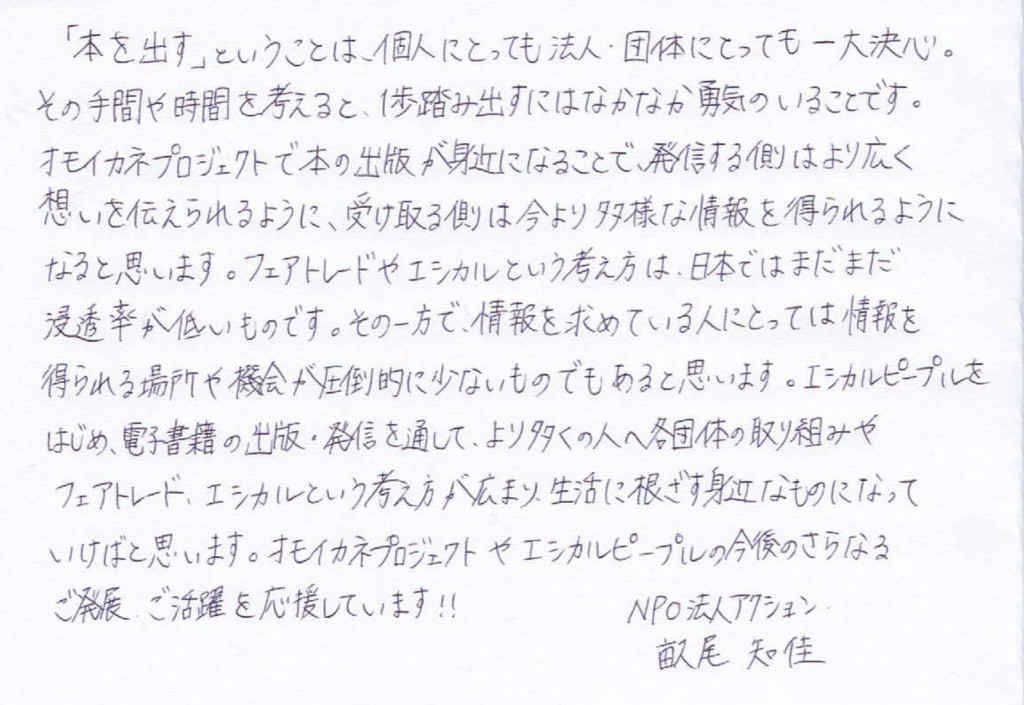 「本を出す」ということは、個人にとっても法人・団体にとっても一大決心。
その手間や時間を考えると、1歩踏み出すにはなかなか勇気のいることです。
オモイカネプロジェクトで本の出版が身近になることで、発信する側はより広く
想いを伝えられるように、受け取る側は今より多様な情報を得られるように
なると思います。フェアトレードやエシカルという考え方は、日本ではまだまだ
浸透率が低いものです。その一方で、情報を求めている人にとっては情報を
得られる場所や機会が圧倒的に少ないものでもあると思います。エシカルピープルを
はじめ、電子書籍の出版・発信を通して、より多くの人へ各団体の取り組みや
フェアトレード、エシカルという考え方が広まり、生活に根ざす身近なものになって
いけばと思います。オモイカネプロジェクトやエシカルピープルの今後のさらなる
ご発展、ご活躍を応援しています!!
NPO法人アクション
畝尾 知佳